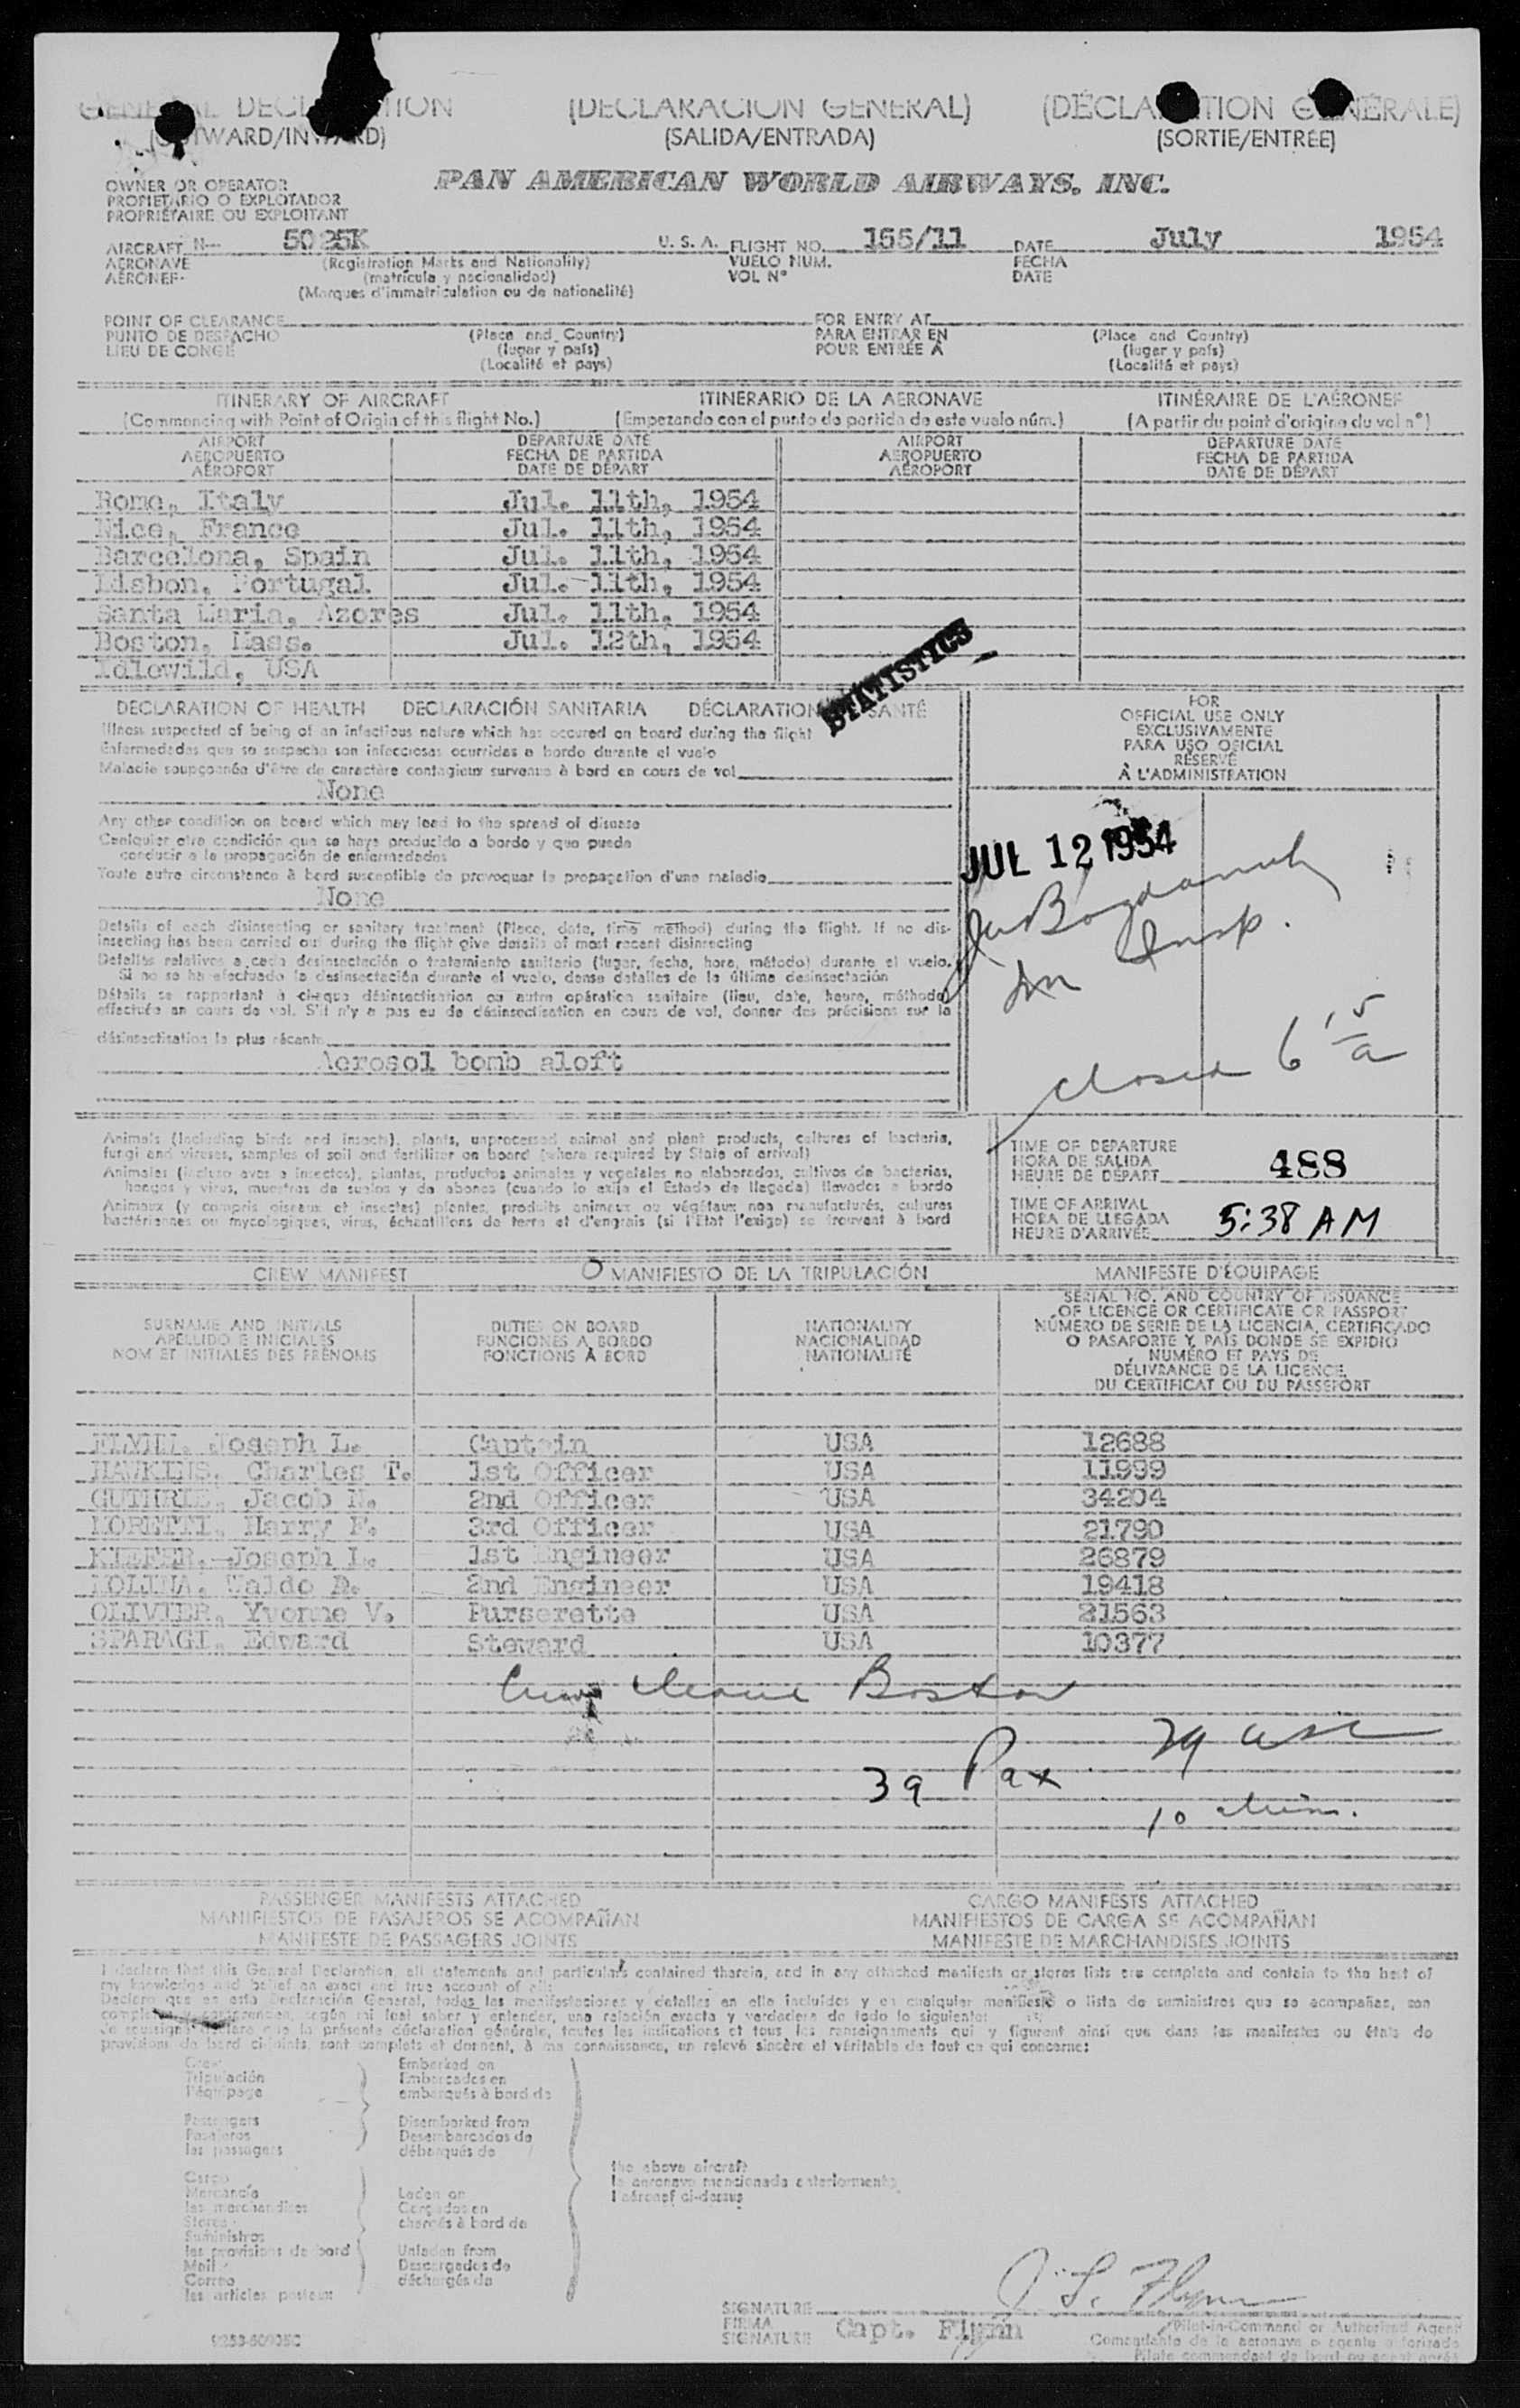 GENERAL DECLARATION (DECLARACION GENERAL) (DÉCLARATION GÉNÉRALE)
(OUTWARD/INWARD) (SALIDA/ENTRADA) (SORTIE/ENTRÉE)
OWNER OR OPERATOR
PROPIETARIO O EXPLOTADOR
PROPRIÉTAIRE OU EXPLOITANT
PAN AMERICAN WORLD AIRWAYS, INC.
AIRCRAFT N— 5025K U. S. A. FLIGHT NO. 155/11 DATE July 1954
AERONAVE (Registration Marks and Nationality) VUELO NUM. FECHA
AÉRONEF (matrícula y nacionalidad) VOL Nº DATE
(Marques d'immatriculation ou de nationalité)
POINT OF CLEARANCE FOR ENTRY AT
PUNTO DE DESPACHO (Place and Country) PARA ENTRAR EN (Place and Country)
LIEU DE CONGÉ (lugar y país) POUR ENTRÉE À (lugar y país)
(Localité et pays) (Localité et pays)
ITINERARY OF AIRCRAFT ITINERARIO DE LA AERONAVE ITINÉRAIRE DE L'AÉRONEF
(Commencing with Point of Origin of this flight No.) (Empezando con el punto de partida de este vuelo núm.) (A partir du point d'origine du vol nº)
AIRPORT DEPARTURE DATE AIRPORT DEPARTURE DATE
AEROPUERTO FECHA DE PARTIDA AEROPUERTO FECHA DE PARTIDA
AÉROPORT DATE DE DÉPART AÉROPORT DATE DE DÉPART
Rome, Italy Jul. 11th, 1954
Nice, France Jul. 11th, 1954
Barcelona, Spain Jul. 11th, 1954
Lisbon, Portugal Jul. 11th, 1954
Santa Maria, Azores Jul. 11th, 1954
Boston, Mass. Jul. 12th, 1954
Idlewild, USA
STATISTICS
DECLARATION OF HEALTH DECLARACIÓN SANITARIA DÉCLARATION SANTÉ
Illness suspected of being of an infectious nature which has occured on board during the flight
Enfermedades que se sospecha son infecciosas ocurridas a bordo durante el vuelo
Maladie soupçonnée d'être de caractère contagieux survenue à bord en cours de vol
None
Any other condition on board which may lead to the spread of disease
Cualquier otra condición que se haya producido a bordo y que puede
conducir a la propagación de enfermedades
Toute autre circonstance à bord susceptible de provoquer la propagation d'une maladie
None
Details of each disinsecting or sanitary treatment (Place, date, time method) during the flight. If no dis-
insecting has been carried out during the flight give details of most recent disinsecting
Detalles relativos a cada desinsectación o tratamiento sanitario (lugar, fecha, hora, método) durante el vuelo.
Si no se ha efectuado la desinsectación durante el vuelo, dense detalles de la última desinsectación
Détails se rapportant à chaque désinsectisation ou autre opération sanitaire (lieu, date, heure, méthode)
effectuée en cours de vol. S'il n'y a pas eu de désinsectisation en cours de vol, donner des précisions sur la
désinsectisation la plus récente
Aerosol bomb aloft
FOR
OFFICIAL USE ONLY
EXCLUSIVAMENTE
PARA USO OFICIAL
RÉSERVÉ
À L'ADMINISTRATION
JUL 12 1954
Insp.
closed 6 15 a
Animals (including birds and insects), plants, unprocessed animal and plant products, cultures of bacteria,
fungi and viruses, samples of soil and fertilizer on board (where required by State of arrival)
Animales (incluso aves e insectos), plantas, productos animales y vegetales no elaborados, cultivos de bacterias,
hongos y virus, muestras de suelos y de abonos (cuando lo exija el Estado de llegada) llevados a bordo
Animaux (y compris oiseaux et insectes) plantes, produits animaux ou végétaux non manufacturés, cultures
bactériennes ou mycologiques, virus, échantillons de terre et d'engrais (si l'Etat l'exige) se trouvant à bord
O
TIME OF DEPARTURE
HORA DE SALIDA
HEURE DE DÉPART 488
TIME OF ARRIVAL
HORA DE LLEGADA
HEURE D'ARRIVÉE 5:38 AM
CREW MANIFEST MANIFIESTO DE LA TRIPULACIÓN MANIFESTE D'ÉQUIPAGE
SURNAME AND INITIALS
APELLIDO E INICIALES
NOM ET INITIALES DES PRÉNOMS
DUTIES ON BOARD
FUNCIONES A BORDO
FONCTIONS À BORD
NATIONALITY
NACIONALIDAD
NATIONALITÉ
SERIAL NO. AND COUNTRY OF ISSUANCE
OF LICENCE OR CERTIFICATE OR PASSPORT
NÚMERO DE SERIE DE LA LICENCIA, CERTIFICADO
O PASAPORTE Y PAÍS DONDE SE EXPIDIÓ
NUMÉRO ET PAYS DE
DÉLIVRANCE DE LA LICENCE,
DU CERTIFICAT OU DU PASSEPORT
FLYNN, Joseph L. Captain USA 12688
HAWKINS, Charles T. 1st Officer USA 11999
GUTHRIE, Jacob N. 2nd Officer USA 34204
MORETTI, Harry F. 3rd Officer USA 21790
KIEFER, Joseph L. 1st Engineer USA 26879
MOLINA, Waldo A. 2nd Engineer USA 19418
OLIVIER, Yvonne V. Purserette USA 21563
SPARAGI, Edward Steward USA 10377
Boston
29 USC
39 Pax
10 alien.
PASSENGER MANIFESTS ATTACHED CARGO MANIFESTS ATTACHED
MANIFIESTOS DE PASAJEROS SE ACOMPAÑAN MANIFIESTOS DE CARGA SE ACOMPAÑAN
MANIFESTE DE PASSAGERS JOINTS MANIFESTE DE MARCHANDISES JOINTS
I declare that this General Declaration, all statements and particulars contained therein, and in any attached manifests or stores lists are complete and contain to the best of
my knowledge and belief an exact and true account of all:
Declaro que en esta Declaración General, todas las manifestaciones y detalles en ella incluídos y en cualquier manifiesto o lista de suministros que se acompañan, son
según mi leal saber y entender, una relación exacta y verdadera de todo lo siguiente:
Je soussigné déclare que la présente déclaration générale, toutes les indications et tous les renseignements qui y figurent ainsi que dans les manifestes ou états de
provisions de bord ci-joints, sont complets et donnent, à ma connaissance, un relevé sincère et véritable de tout ce qui concerne:
Crew
Tripulación
l'équipage
Embarked on
Embarcados en
embarqués à bord de
Passengers
Pasajeros
les passagers
Disembarked from
Desembarcados de
débarqués de
the above aircraft
la aeronave mencionada anteriormente
l'aéronef ci-dessus
Cargo
Mercancía
les marchandises
Stores
Suministros
les provisions de bord
Mail
Correo
les articles postaux
Laden on
Cargados en
chargés à bord de
Unladen from
Descargados de
déchargés de
J. L. Flynn
SIGNATURE
FIRMA
SIGNATURE
Capt. Flynn
Pilot-in-Command or Authorized Agent
Comandante de la aeronave o agente autorizado
Pilote commandant de bord ou agent agréé